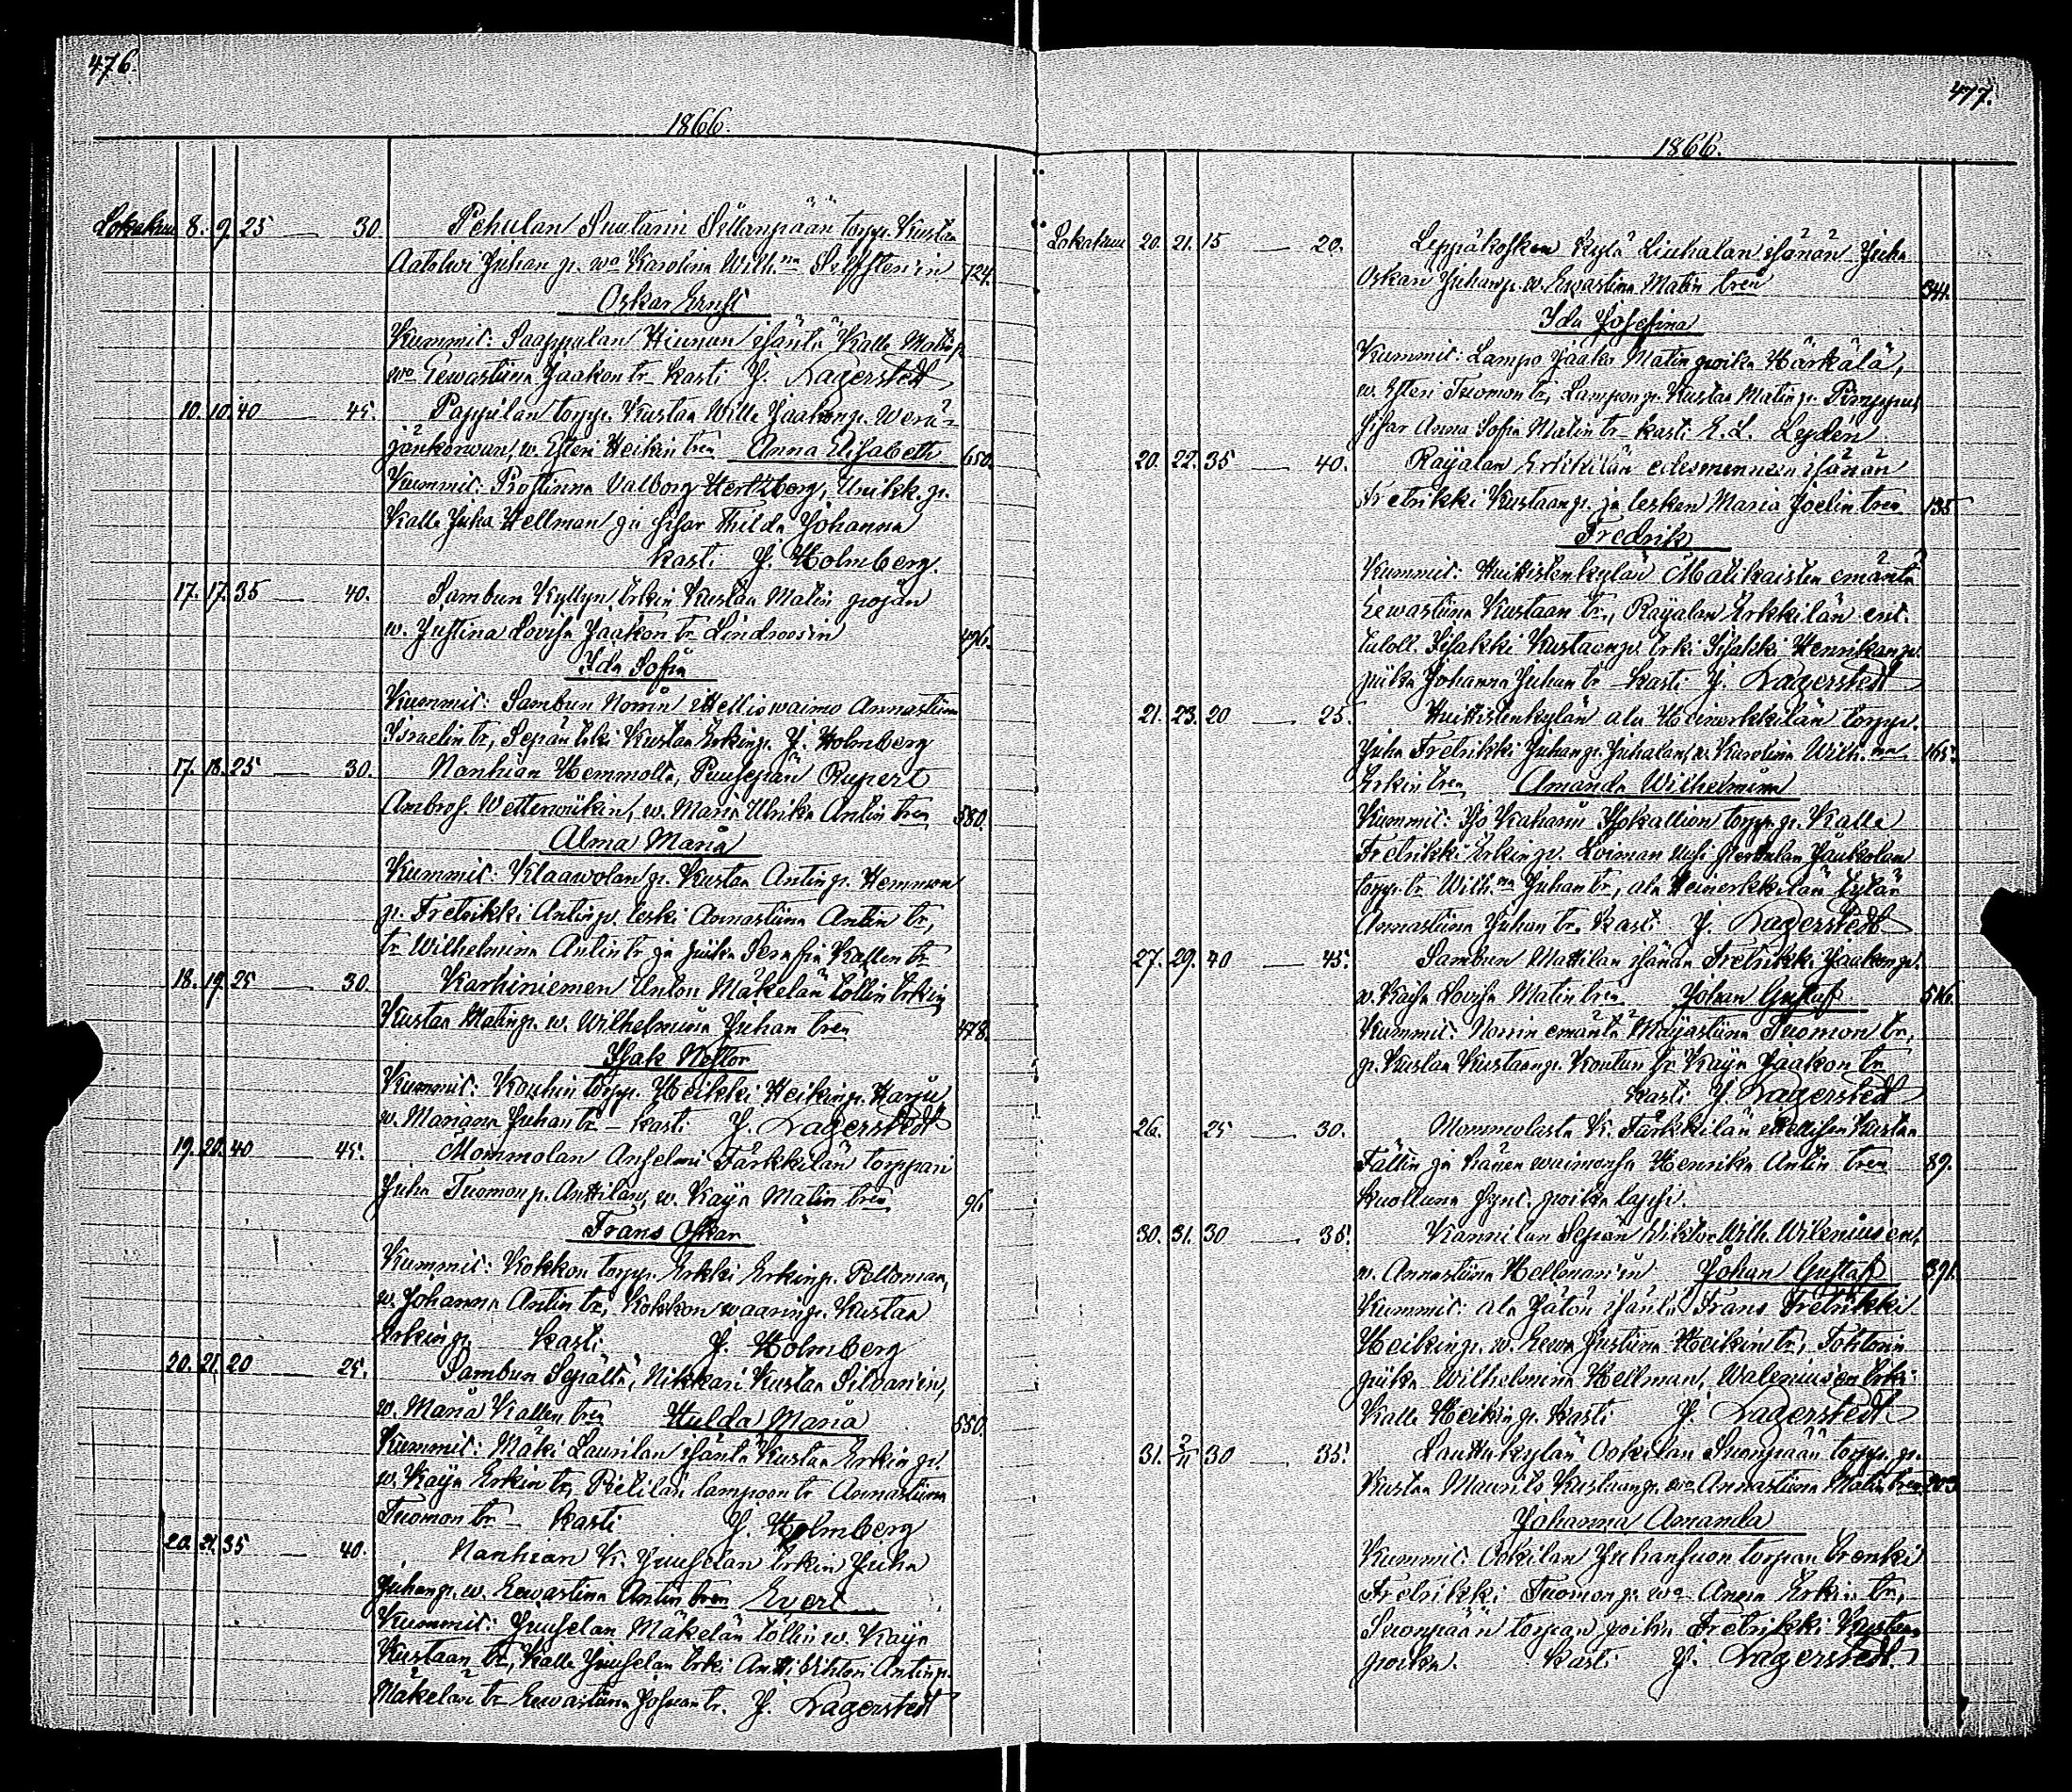 476.
1866.
Lokakuu 8. 9. 25 — 30. Pehulan Suutarin Sillanpään torpp. Kustaa
Aatolwi Juhan p. wo Karolina Wilh.na 724.
Oskar Ernst
Kummit: Saappalan Hiunun isäntä Kalle Matinp.
wo Eewastiina Jaakon tr kasti J. Lagerstedt
10. 10. 40 — 45. Pappilan torpp. Kustaa Wille Jaakonp.
w. Esteri Heikin tren Anna Elisabeth 650.
Kummit: Prostinna Valborg Hertzberg, Unikk. p.
Kalle Juha Hellman ja sisar Thilda Johanna
kasti J. Holmberg.
17. 17. 35 — 40. Sambun Kyllyn Erkin Kustaa Matin pojan
w. Justina Lovisa Jaakon tr Lindroosin 496.
Ida Sofia
Kummit: Sambun Norrin waimo Annastiina
Israelin tr, Sepän Erki Kustaa Erkinp. J. Holmberg
17. 18. 25 — 30. Nanhian Hemmolta, Puusepän Rupert
Ambros. w. Maria Ulrika Antin tren 580.
Alma Maria
Kummit: Klaawolan p. Kustaa Antinp. Hemmon
p. Fretrikki Antinp. leski Annastiina Antin tr,
tr Wilhelmina Antin tr ja piika Serafia Kallen tr
18. 19. 25 — 30. Karhiniemen Anton Mäkelän töllin Erkin
Kustaa Matinp. w. Wilhelmiina Juhan tren 478.
Isak Nestor
Kummit: Kouhin torpp. Heikki Heikinp. Harju
w. Mariana Juhan tr — kasti J. Lagerstedt
19. 20. 40 — 45. Mommolan Anselmi Färkkilän torppari
Juha Tuomonp. Anttilan, w. Kaya Matin tren 96.
Frans Oskar
Kummit: Kokkon torpp. Erkki Erkinp. Peltoman,
w. Johanna Antin tr, Kokkon waarinp. Kustaa
Erkinp. kasti J. Holmberg
20. 21. 20 — 25. Sambun Sepältä, Nikkari Kustaa Silvan'in,
w. Maria Kallen tren Hulda Maria 550.
Kummit: Mäki Laurilan isäntä Kustaa Erkin p.
w. Kaya Erkin tr, Pietilän lampoon tr Annastiina
Tuomon tr — kasti J. Holmberg
20. 21. 35 — 40. Nanhian K. Juuselan Erkin Juha
Juhanp. w. Eewastina Antin tren Evert
Kummit: Juuselan Mäkelän töllin w. Kaya
Kustaan tr, Kalle Juuselan Erki Antti Wihtori Antinp.
Mäkelän tr Eewastiina Johan tr. J. Lagerstedt
477.
1866.
Lokakuu 20. 21. 15 — 20. Leppäkosken kylä Liuhalan isänän Juha
Oskari Juhanp. w. Ewastina Matin tren 344.
Ida Josefina
Kummit: Lampo Jaako Matin poika Härkälä,
w. Esteri Tuomon tr, Lampon p. Kustaa Matinp.
sisar Anna Sofia Matin tr kasti E. L. Leyden
20. 22. 35 — 40. Raijalan Erkkilän edesmennein isänän
Fretrikki Kustaanp. ja lesken Maria Joelin tren 135
Fredrik
Kummit: Huittistenkylän Matikaisten emäntä
Eewastiina Kustaan tr, Raijalan Erkkilän ent.
taloll. Iisakki Kustaanp. Erki Iisakki Henrikanp.
piika Johanna Juhan tr kasti J. Lagerstedt
21. 23. 20 — 25. Huittistenkylän ala Heinerkkilän torpp.
Juha Fretrikki Juhanp. Juhalan, w. Karolina Wilh.na 165.
Erkin tren Amanda Wilhelmina
Kummit: Iso Kaharin Isokallion torpp. p. Kalle
Fretrikki Erkin p. Loiman Uusi Jaakolan
torpp. tr Wilh.na Juhan tr, ala Heinerkkilän
Annastiina Juhan tr. Kasti J. Lagerstedt
27. 29. 40 — 45. Sambun Mattilan isänän Fretrikki Jaakonp.
w. Kaisa Lovisa Matin tren Johan Gustaf 546.
Kummit: Norrin emäntä Majastiina Tuomon tr,
p. Kustaa Kustaanp. Koulun tr Kaya Jaakon tr
kasti J. Lagerstedt
26. 25 — 30. Mommolasta K. Färkkilän Kustaa
Fällin ja hänen waimonsa Henrika Antin tren 89.
kuolluna synt. poika lapsi.
30. 31. 30 — 35. Kannilan Sepän Wiktor Wilh. Wilenius'en,
w. Annastiina Hellman'in Johan Gustaf 391.
Kummit: ala Jaton isäntä Frans Fretrikki
Heikinp. w. Eewa Justiina Heikin tr, Tohtorin
piika Wilhelmina Hellman, Walenius'en Erki
Kalle Heikinp. kasti J. Lagerstedt
31. 2/11 30 — 35. Lauttakylän Ookilan Suonpään torpp. p.
Kustaa Maurits Kustaanp. wo Annastiina Matin tren 203
Johanna Amanda
Kummit: Ookilan Juhansuon torpan trenki
Fretrikki Tuomonp. wo Anna Erkin tr,
Suonpään torpan poika Fretrikki Kustaa
poika. Kasti J. Lagerstedt.